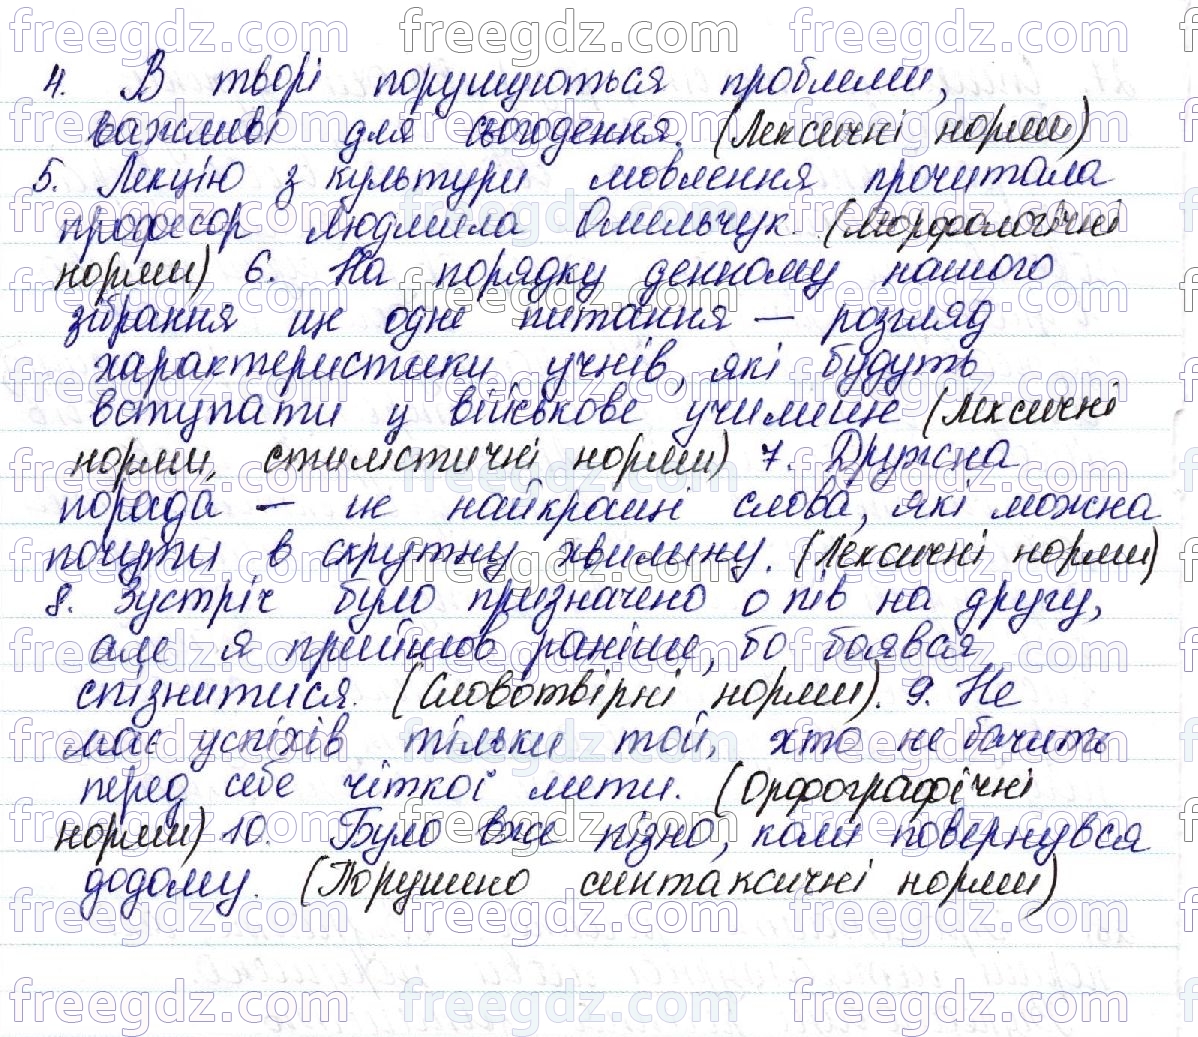 4. В творі порушуються проблеми,
важливі для сьогодення. (Лексичні норми)
5. Лекцію з культури мовлення прочитала
професор Людмила Омельчук. (Морфологічні
норми) 6. На порядку денному нашого
зібрання ще одне питання — розгляд
характеристики учнів, які будуть
вступати у військове училище (Лексичні
норми, стилістичні норми) 7. Дружна
порада — це найкращі слова, які можна
почути в скрутну хвилину. (Лексичні норми)
8. Зустріч було призначено о пів на другу,
але я прийшов раніше, бо боявся
спізнитися. (Словотвірні норми). 9. Не
має успіхів тільки той, хто не бачить
перед себе чіткої мети. (Орфографічні
норми) 10. Було вже пізно, коли повернувся
додому. (Порушено синтаксичні норми)
freegdz.com